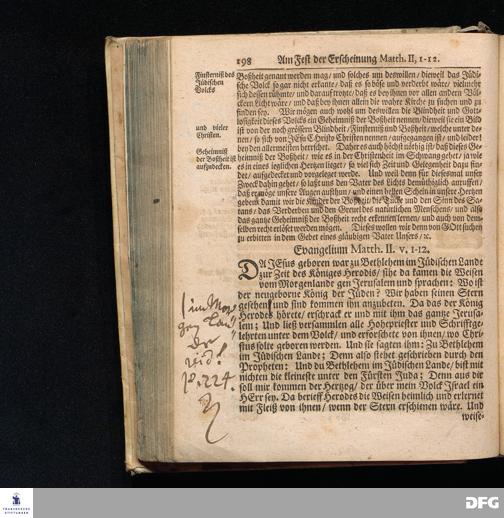 198 Am Fest der Erscheinung Matth. II, 1-12.
Finsterniß des
Jüdischen
Volcks
und vieler
Christen.
Geheimniß
der Boßheit ist
aufzudecken.
Boßheit genant werden mag/ und solches um deswillen/ dieweil das Jüdi-
sche Volck so gar nicht erkante/ daß es so böse und verderbt wäre/ vielmehr
sich dessen rühmte/ und darauf trotzte/ daß es bey ihnen vor allen andern Völ-
ckern Licht wäre/ und daß bey ihnen allein die wahre Kirche zu suchen und zu
finden sey. Wir mögen auch wohl um deswillen die Blindheit und Gott-
losigkeit dieses Volcks ein Geheimniß der Boßheit nennen/ dieweil sie ein Bild
ist von der noch grössern Blindheit/ Finsterniß und Boßheit/ welche unter de-
nen/ so sich von JEsu Christo Christen nennen/ aufgegangen ist/ und leider!
bey den allermeisten herrschet. Daher es auch höchst nöthig ist/ daß dieses Ge-
heimniß der Boßheit/ wie es in der Christenheit im Schwang gehet/ ja wie
es in eines ieglichen Hertzen lieget/ so viel sich Zeit und Gelegenheit dazu fin-
det/ aufgedecket und vorgeleget werde. Und weil denn für diesesmal unser
Zweck dahin gehet/ so laßt uns den Vater des Lichts demüthiglich anruffen/
daß er wolle unsere Augen aufthun/ und einen hellen Schein in unsere Hertzen
geben/ damit wir die Stricke der Boßheit/ die Tücke und den Sinn des Sa-
tans/ das Verderben und den Greuel des natürlichen Menschens/ und also
das gantze Geheimniß der Boßheit recht erkennen lernen/ und auch von dem-
selben recht erlöset werden mögen. Dieses wollen wir denn von GOtt suchen
zu erbitten in dem Gebet eines gläubigen Vater Unsers/ ꝛc.
Evangelium Matth. II. v, 1-12.
DA JEsus geboren war zu Bethlehem im Jüdischen Lande
zur Zeit des Königes Herodis/ sihe da kamen die Weisen
vom Morgenlande gen Jerusalem und sprachen: Wo ist
der neugeborne König der Jüden? Wir haben seinen Stern
gesehen/ und sind kommen ihn anzubeten. Da das der König
Herodes hörete/ erschrack er und mit ihm das gantze Jerusa-
lem; Und ließ versammlen alle Hohepriester und Schriftge-
lehrten unter dem Volck/ und erforschete von ihnen/ wo Chri-
stus solte geboren werden. Und sie sagten ihm: Zu Bethlehem
im Jüdischen Lande; Denn also stehet geschrieben durch den
Propheten: Und du Bethlehem im Jüdischen Lande/ bist mit
nichten die kleineste unter den Fürsten Juda; Denn aus dir
soll mir kommen der Hertzog/ der über mein Volck Jsrael ein
HErr sey. Da berieff Herodes die Weisen heimlich und erlernet
mit Fleiß von ihnen/ wenn der Stern erschienen wäre. Und
weise-
vid.
p. 224.
FRANCKESCHE
STIFTUNGEN
DFG